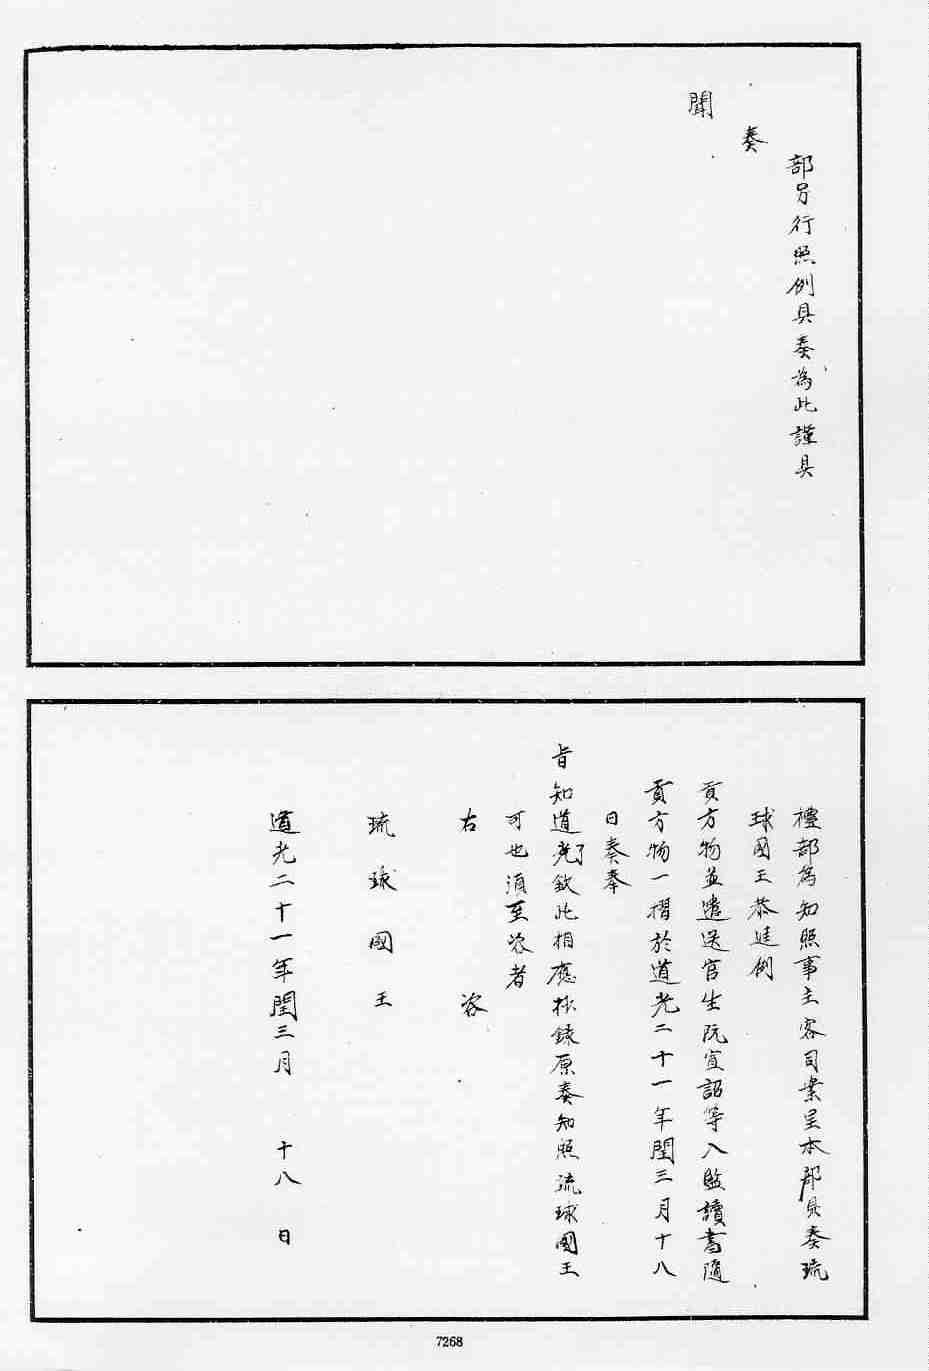 部另行照例具奏為此謹具
奏
聞
禮部為知照事主客司案呈本部具奏琉
球國王恭進例
貢方物並遣送官生阮宣詔等入監讀書隨
貢方物一摺於道光二十一年閏三月十八
日奏奉
旨知道了欽此相應抄錄原奏知照流球國王
可也須至咨者
右咨
琉球國王
道光二十一年閏三月十八日
7268